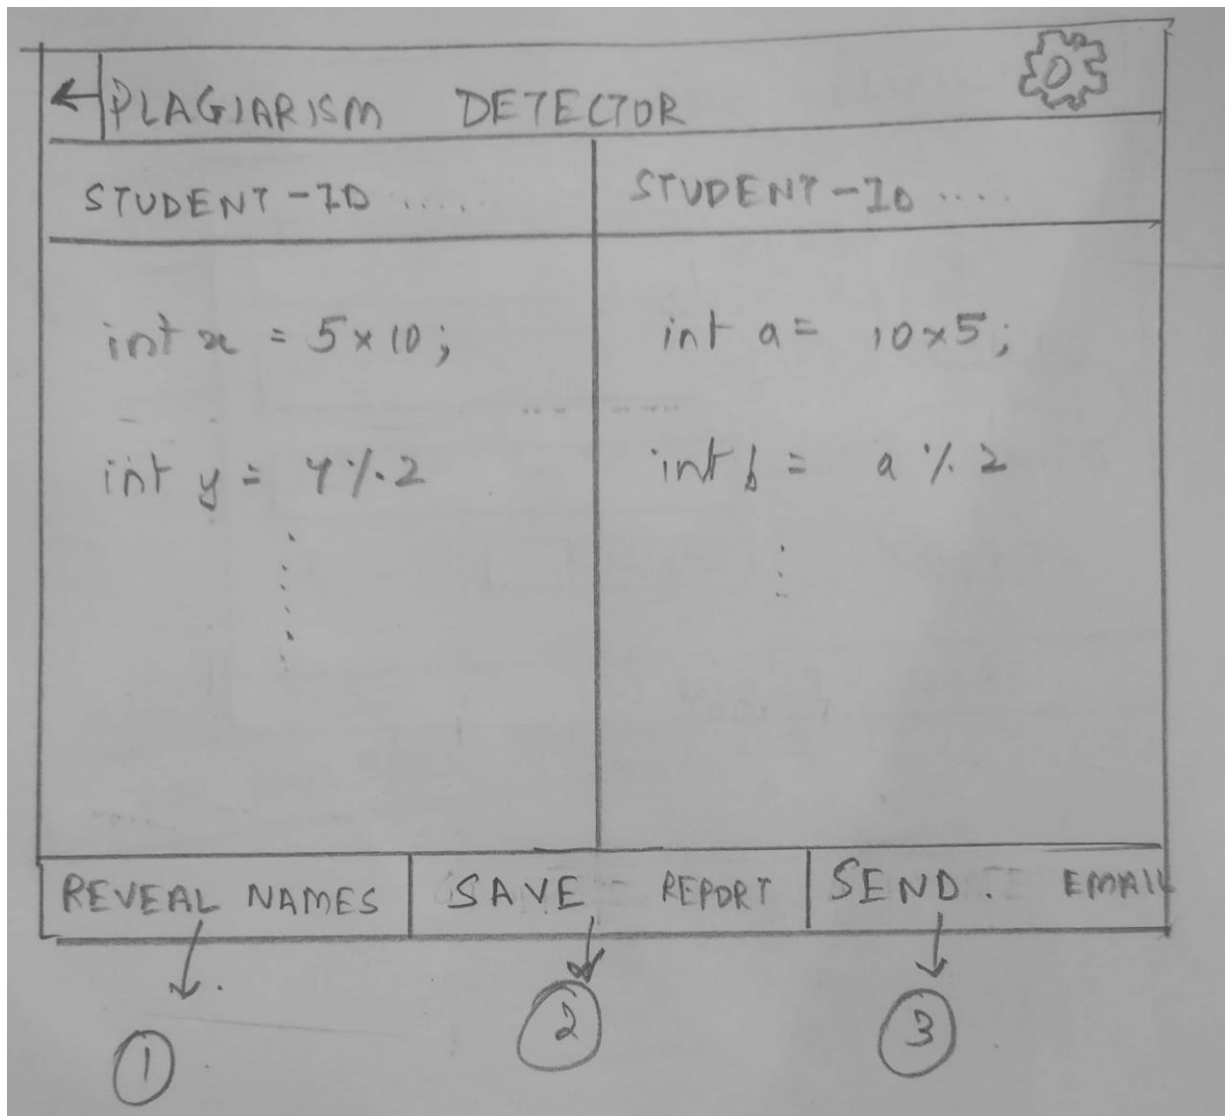 PLAGIARISM DETECTOR
STUDENT-ID .....
STUDENT-ID ....
int x = 5 x 10;
int y = y % 2
int a = 10 x 5;
int b = a % 2
REVEAL NAMES
SAVE REPORT
SEND. EMAIL
1
2
3